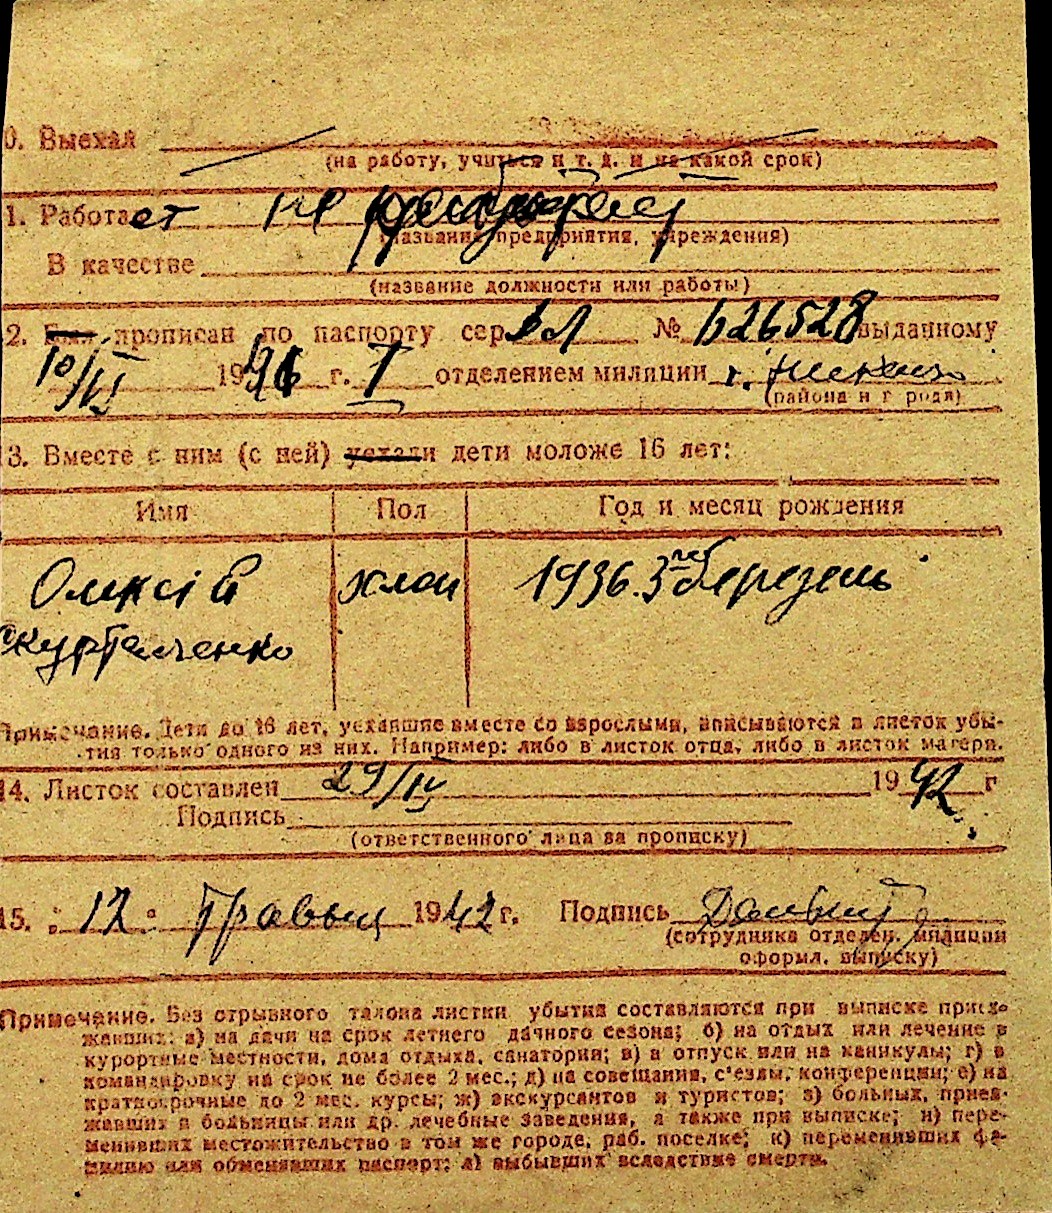 0. Выехал
(на работу, учиться и т. д. и на какой срок)
1. Работает не
(название предприятия, учреждения)
В качестве
(название должности или работы)
2. Был прописан по паспорту сер. № 626528 выданному
10/VI 19 г. I отделением милиции г.
(района и г родя)
13. Вместе с ним (с ней) уехали дети моложе 16 лет:
Имя Пол Год и месяц рождения
Олексій хлоп 1936.3го березень
Скуртаченко
Примечание. Дети до 16 лет, уехавшие вместе со взрослыми, вписываются в листок убы-
тия только одного из них. Например: либо в листок отца, либо в листок матери.
14. Листок составлен 29/IV 1942 г
Подпись
(ответственного лица за прописку)
15. 12 Травня 1942 г. Подпись
(сотрудника отделен. милиции
оформл. выписку)
Примечание. Без отрывного талона листки убытия составляются при выписке приез-
жавших: а) на дачи на срок летнего дачного сезона; б) на отдых или лечение в
курортные местности, дома отдыха, санатории; в) в отпуск или на каникулы; г) в
командировку на срок не более 2 мес.; д) на совещания, с'езды, конференции; е) на
краткосрочные до 2 мес. курсы; ж) экскурсантов и туристов; з) больных, приез-
жавших в больницы или др. лечебные заведения, а также при выписке; и) пере-
менивших местожительство в том же городе, раб. поселке; к) переменивших фа-
милию или обменявших паспорт; л) выбывших вследствие смерти.